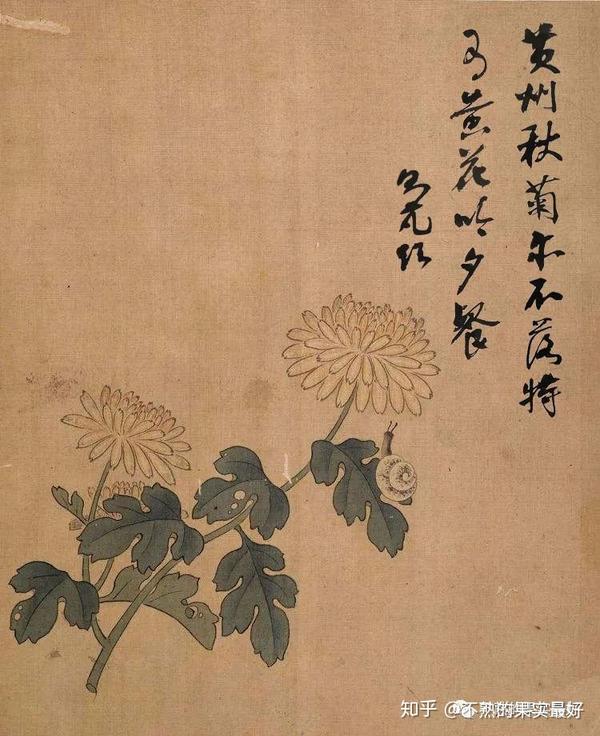 黄州秋菊亦不落特
为黄花吟夕餐
知乎 @不熟的果实最好